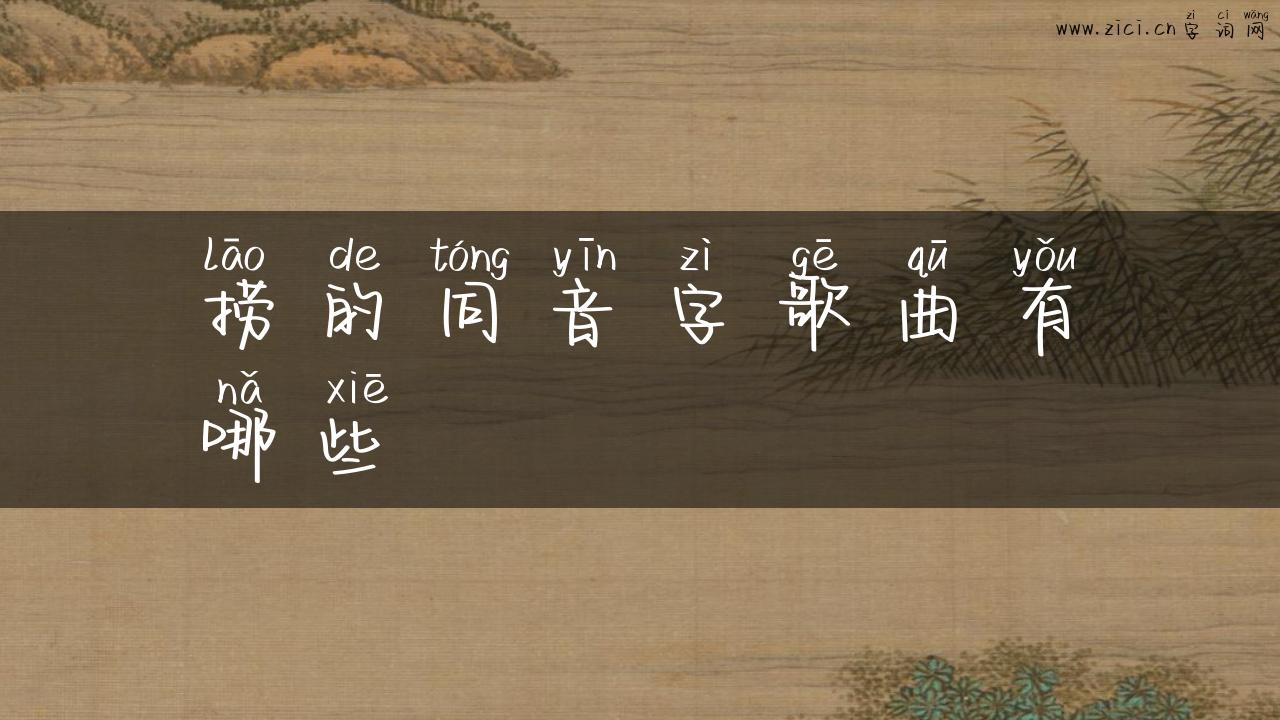 www.zici.cn 字词网
zì cí wǎng
lāo de tóng yīn zì gē qū yǒu
捞的同音字歌曲有
nǎ xiē
哪些